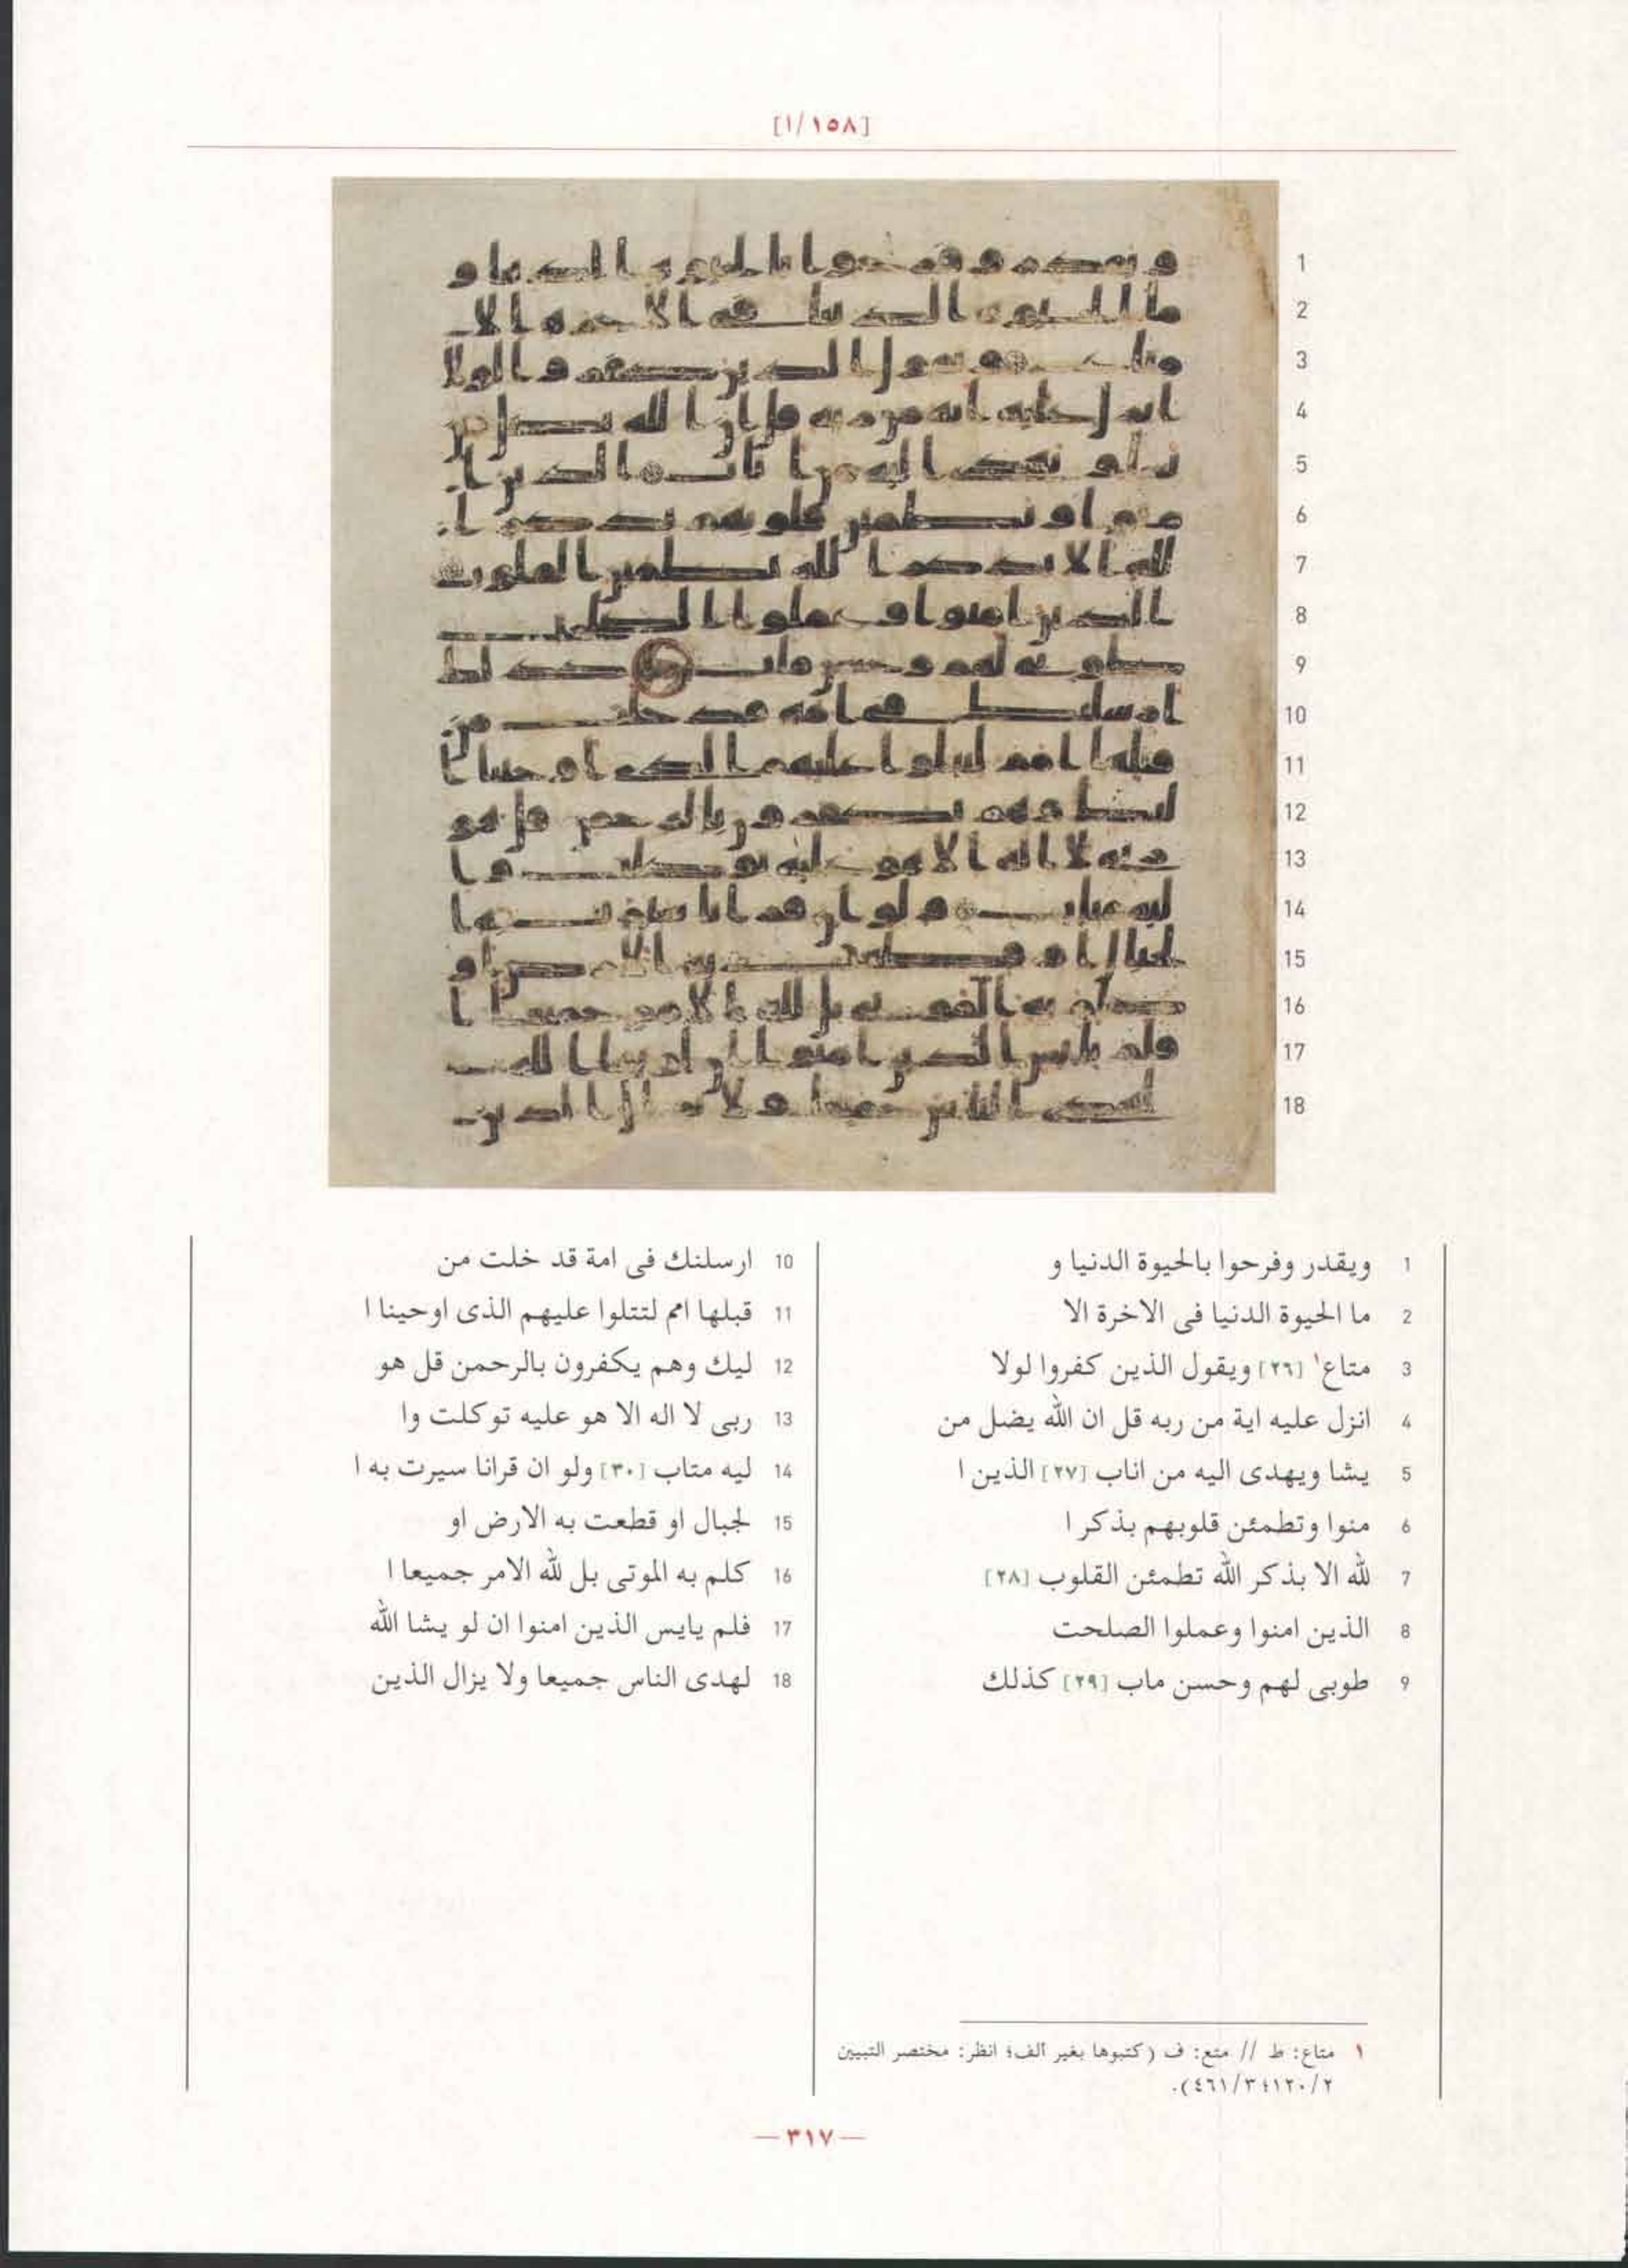 [١/١٥٨]
1 ويقدر وفرحوا بالحيوة الدنيا و
2 ما الحيوة الدنيا فى الاخرة الا
3 متاع١ [٢٦] ويقول الذين كفروا لولا
4 انزل عليه اية من ربه قل ان الله يضل من
5 يشا ويهدى اليه من اناب [٢٧] الذين ا
6 منوا وتطمئن قلوبهم بذكر ا
7 لله الا بذكر الله تطمئن القلوب [٢٨]
8 الذين امنوا وعملوا الصلحت
9 طوبى لهم وحسن ماب [٢٩] كذلك
10 ارسلنك فى امة قد خلت من
11 قبلها امم لتتلوا عليهم الذى اوحينا ا
12 ليك وهم يكفرون بالرحمن قل هو
13 ربى لا اله الا هو عليه توكلت وا
14 ليه متاب [٣٠] ولو ان قرانا سيرت به ا
15 لجبال او قطعت به الارض او
16 كلم به الموتى بل لله الامر جميعا ا
17 فلم يايس الذين امنوا ان لو يشا الله
18 لهدى الناس جميعا ولا يزال الذين
١ متاع: ط // متع: ف (كتبوها بغير ألف؛ انظر: مختصر التبيين
٢/١٢٠؛ ٣/٤٦١).
— ٣١٧ —